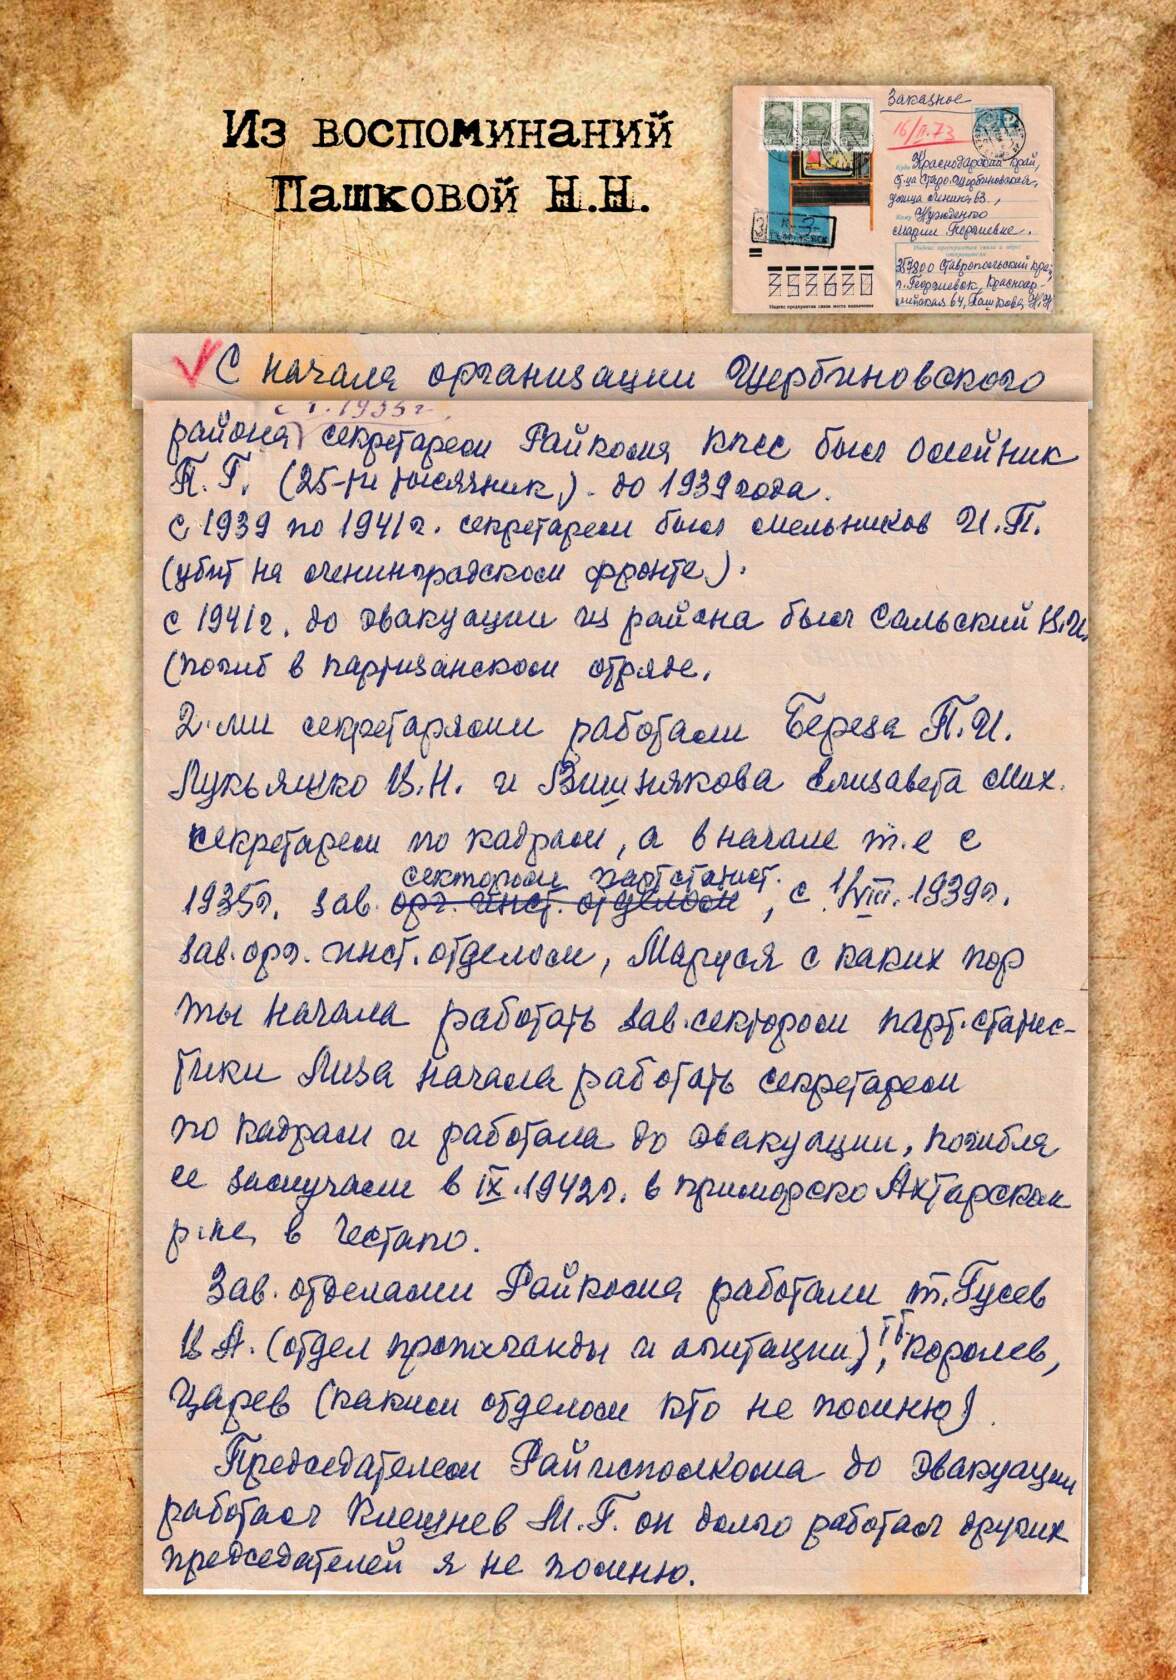 Из воспоминаний
Пашковой Н.Н.
Заказное
16/II.73
Куда Краснодарский край,
ст-ца Старо-Щербиновская,
улица Ленина,
Кому
Марии
357800 Ставропольский край,
г. Георгиевск, Красноар-
мейская 64, Пашкова Н.Н
353630
Индекс предприятия связи места назначения
С начала организации Щербиновского
с 1935г.
района, секретарем Райкома КПСС был Олейник
П.Г. (25-ти тысячник). до 1939 года.
с 1939 по 1941г. секретарем был Мельников И.П.
(убит на Ленинградском фронте).
с 1941г. до эвакуации из района был Сальский В.И.
(погиб в партизанском отряде.
2-ми секретарями работали Береза П.И.
Лукьяшко В.Н. и Вишнякова Елизавета Мих.
секретарем по кадрам, а в начале т.е с
сектором партстатист.
1935г. зав. орг. инст. отделом, с 1/VIII. 1939г.
зав. орг. инст. отделом, Маруся с каких пор
ты начала работать зав. сектором парт. статис-
тики Лиза начала работать секретарем
по кадрам и работала до эвакуации, погибла
ее замучали в IX.1942г. в приморско Ахтарском
р-не, в гестапо.
Зав. отделами Райкома работали т. Гусев
В А. (отдел пропаганды и агитации), т.т. Королев,
Царев (каким отделом кто не помню)
Председателем Райисполкома до эвакуации
работал Клещнев М.Г. он долго работал других
председателей я не помню.